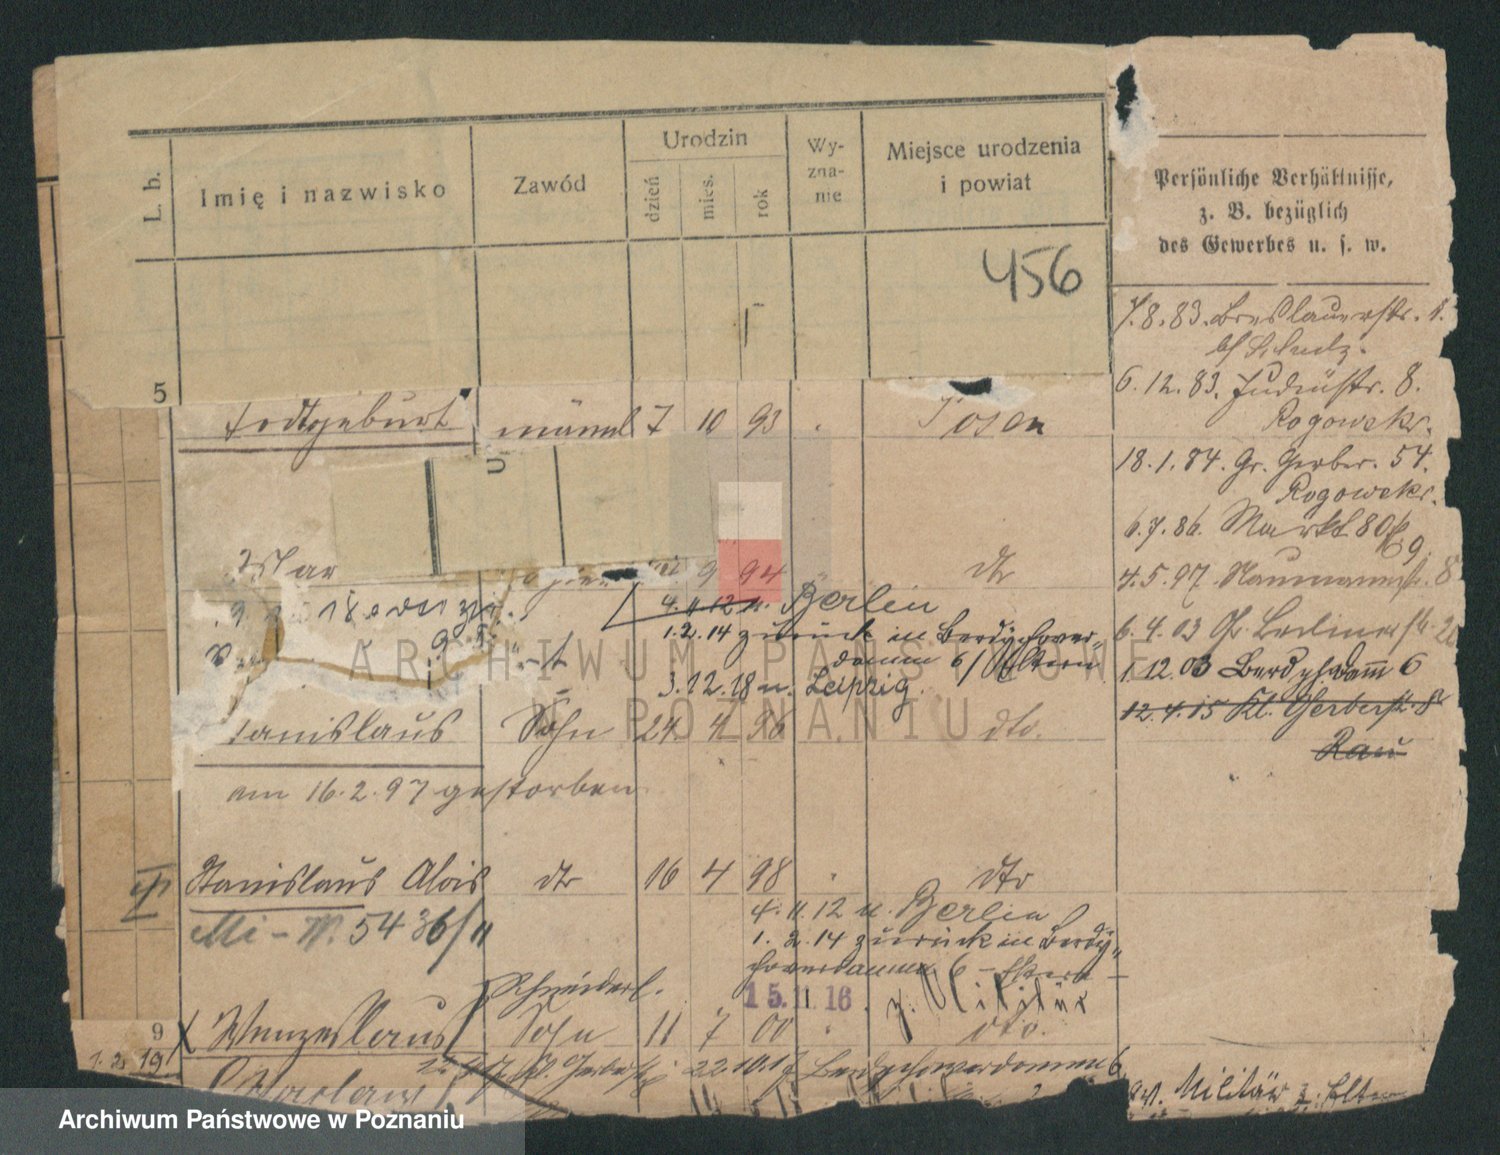 L. b.
Imię i nazwisko
Zawód
Urodzin
dzień
mies.
rok
Wy-
zna-
nie
Miejsce urodzenia
i powiat
456
5
Persönliche Verhältnisse,
z. B. bezüglich
des Gewerbes u. s. w.
7.8.83. Breslauerstr. 1.
6.12.83. Judenstr. 8.
Rogowski.
18.1.84. Gr. Gerber. 54.
Rogowski.
6.7.86. Markt 80
4.5.97. Naumannstr. 8
6.4.03 Gr. Berlinerstr. 20
1.12.03 Berdychdamm 6
12.4.15 Kl. Gerberstr. 8
Rau
Todtgeburt männl 7 10 93 Posen
9 94 dto
4.11.12 n. Berlin
1.2.14 zurück in Berdychower-
damm 6 / Eltern
3.12.18 n. Leipzig.
Stanislaus Sohn 24. 4 96 dto.
am 16.2.97 gestorben
Stanislaus Alois dto 16 4 98 dto
Mi - N. 5436/11
4.11.12 n. Berlin
1.2.14 zurück in Berdy-
chowerdamm 6 - Eltern -
15. 11. 16. z. Militär
Schneiderl.
9 Wenzeslaus Sohn 11 7 00 dto.
1.2.19
Waclaw
Kl. Gerberstr. 22.10.17 Berdychowerdamm 6
Militär z. Eltern
ARCHIWUM PAŃSTWOWE
W POZNANIU
Archiwum Państwowe w Poznaniu